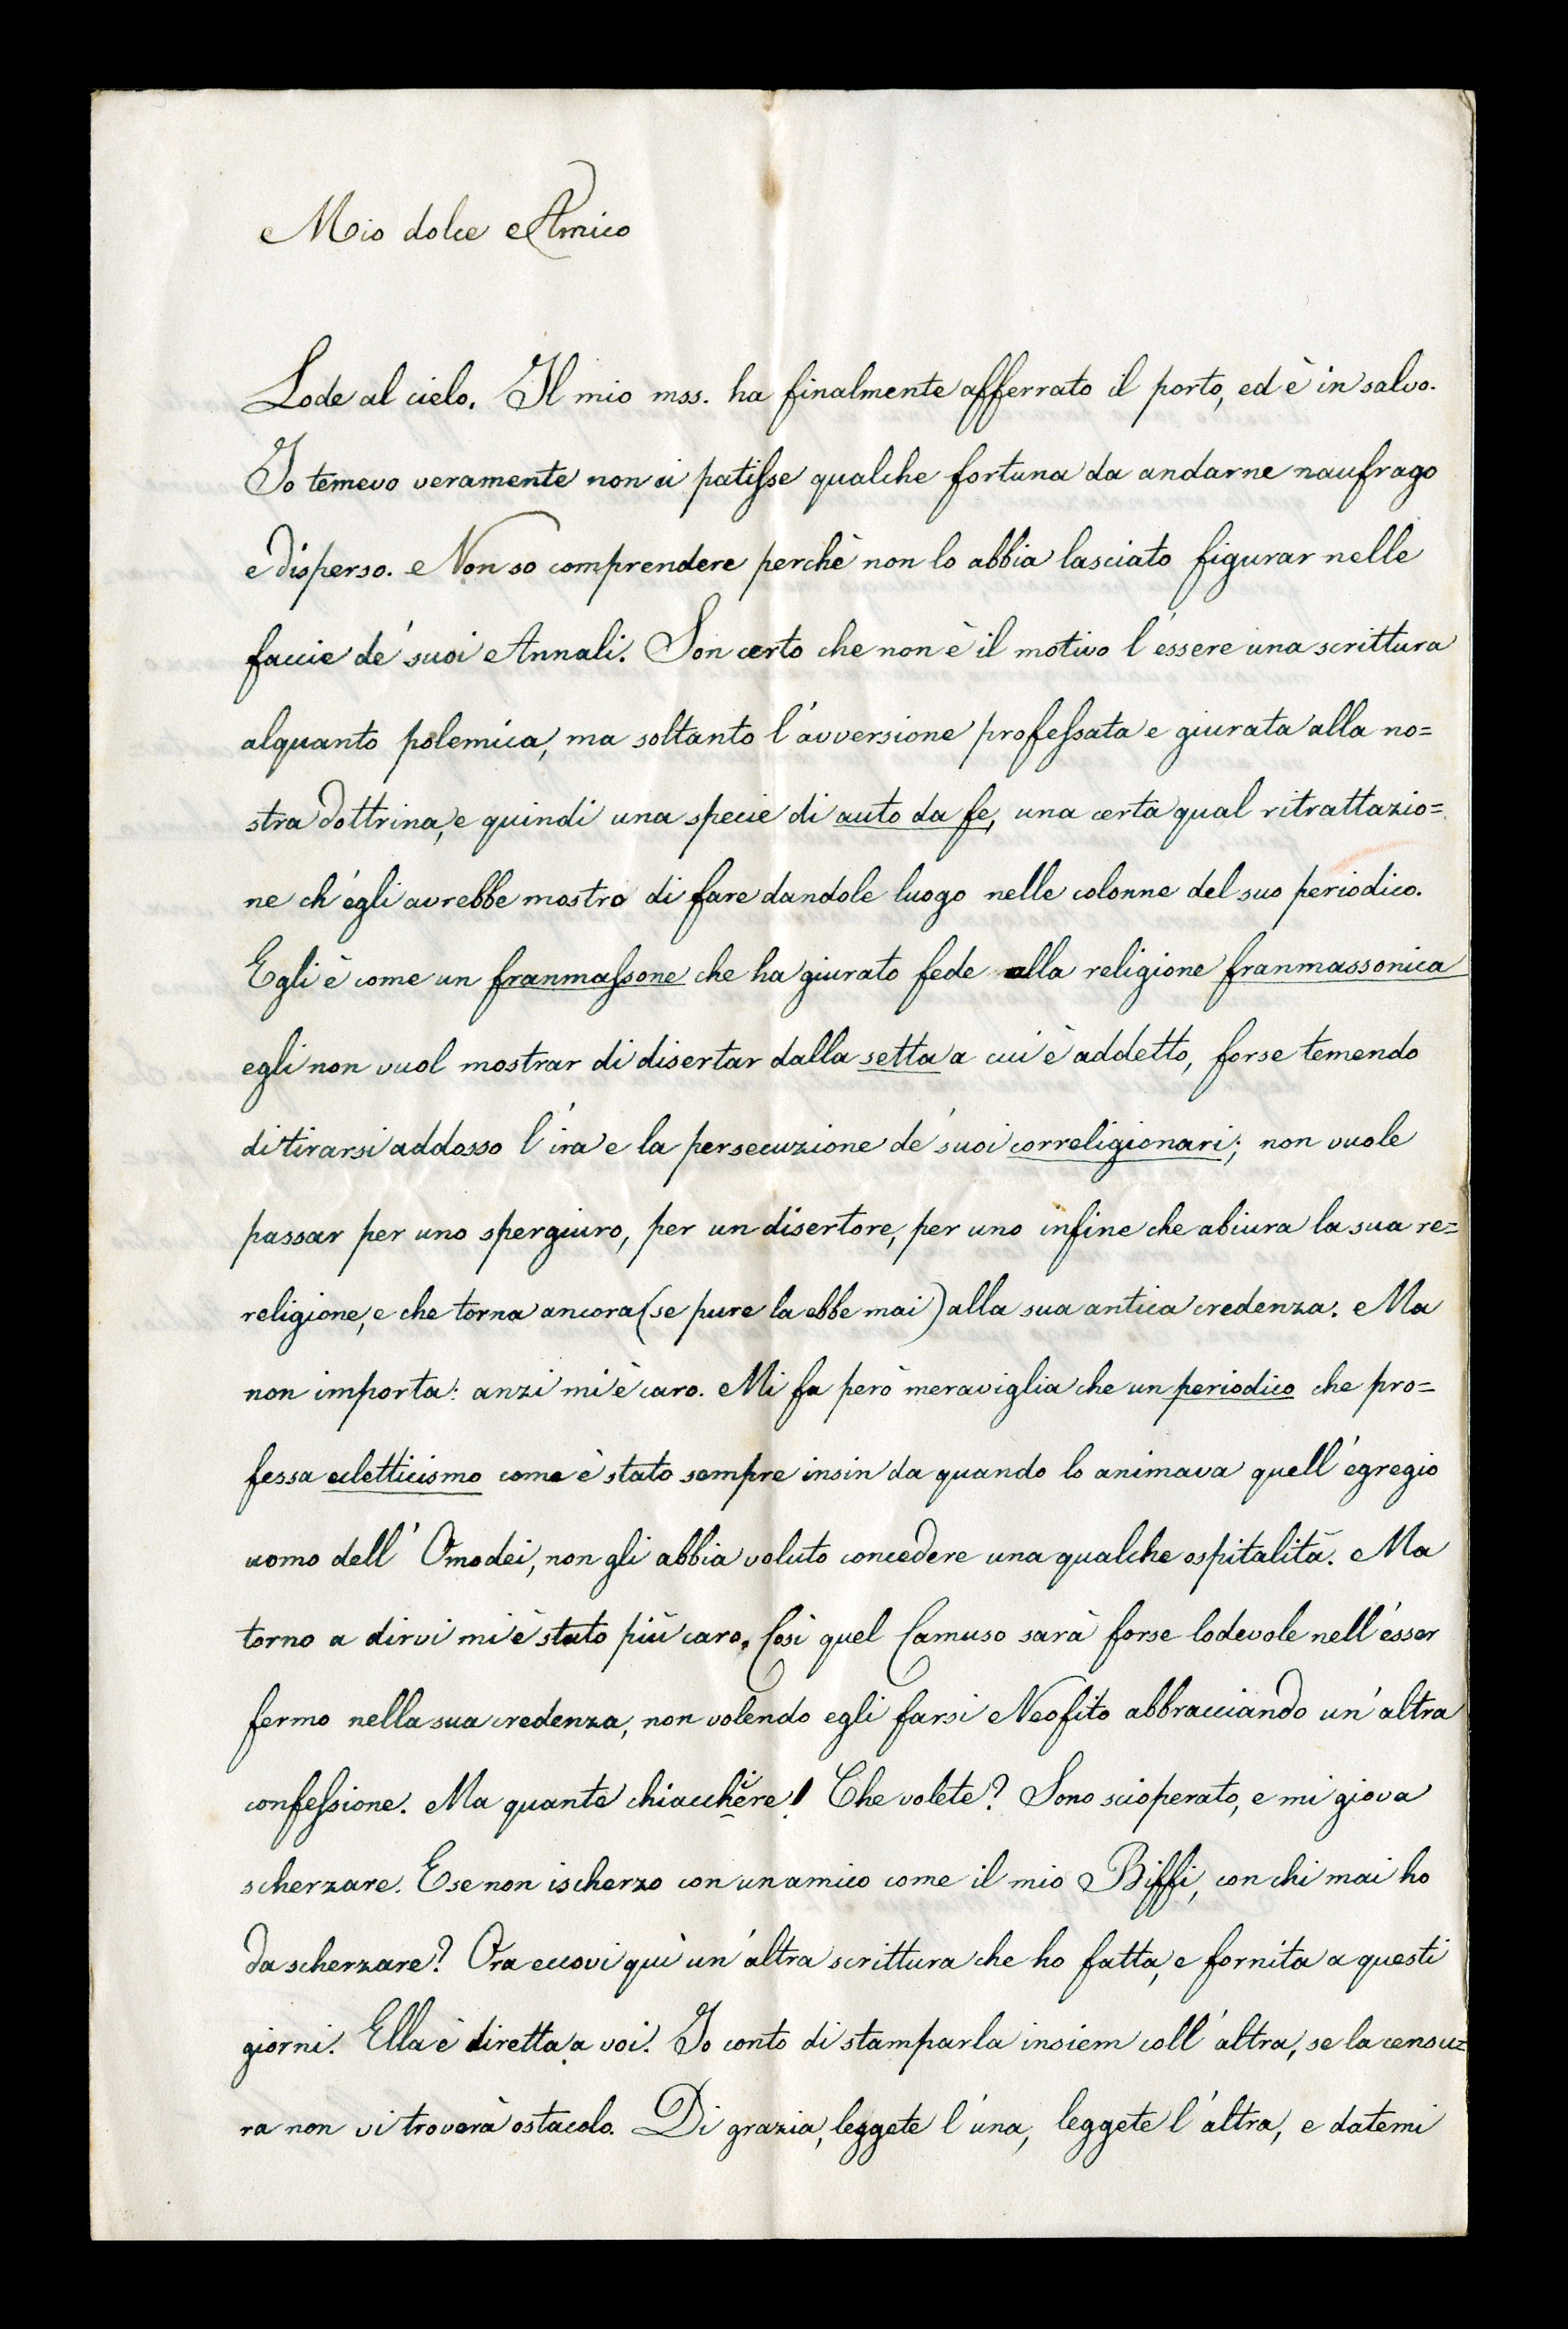 Mio dolce Amico
Lode al cielo. Il mio mss. ha finalmente afferrato il porto, ed è in salvo.
Io temevo veramente non ci patisse qualche fortuna da andarne naufrago
e disperso. Non so comprendere perchè non lo abbia lasciato figurar nelle
faccie de' suoi Annali. Son certo che non è il motivo l'essere una scrittura
alquanto polemica, ma soltanto l'avversione professata e giurata alla no=
stra dottrina, e quindi una specie di auto da fe, una certa qual ritrattazio=
ne ch'egli avrebbe mostro di fare dandole luogo nelle colonne del suo periodico.
Egli è come un franmassone che ha giurato fede alla religione franmassonica
egli non vuol mostrar di disertar dalla setta a cui è addetto, forse temendo
di tirarsi addosso l'ira e la persecuzione de' suoi correligionari; non vuole
passar per uno spergiuro, per un disertore, per uno infine che abiura la sua re=
religione, e che torna ancora (se pure la ebbe mai) alla sua antica credenza. Ma
non importa: anzi mi è caro. Mi fa però meraviglia che un periodico che pro=
fessa ecletticismo come è stato sempre insin da quando lo animava quell'egregio
uomo dell'Omodei, non gli abbia voluto concedere una qualche ospitalità. Ma
torno a dirvi mi è stato più caro. Così quel Camuso sarà forse lodevole nell'esser
fermo nella sua credenza, non volendo egli farsi Neofito abbracciando un'altra
confessione. Ma quante chiacchiere! Che volete? Sono scioperato, e mi giova
scherzare. E se non ischerzo con un amico come il mio Biffi, con chi mai ho
da scherzare? Ora eccovi quì un'altra scrittura che ho fatta, e fornita a questi
giorni. Ella è diretta a voi. Io conto di stamparla insiem coll'altra, se la censu=
ra non vi troverà ostacolo. Di grazia, leggete l'una, leggete l'altra, e datemi